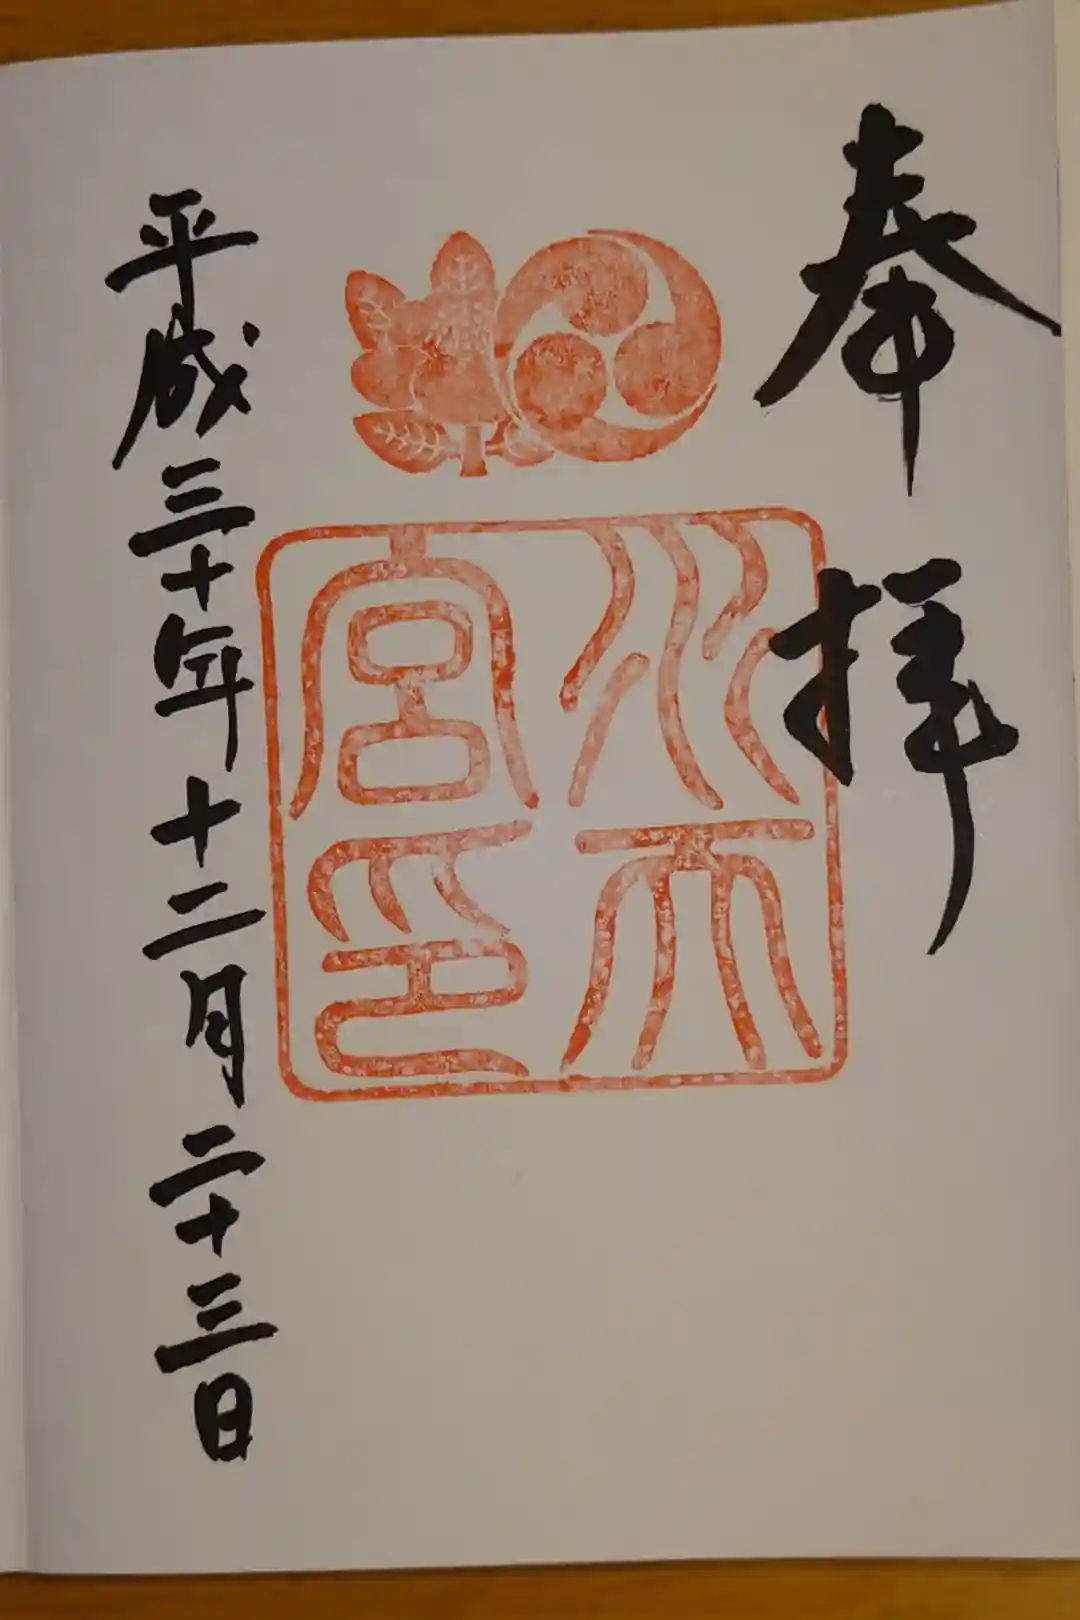 奉拝
水天
宮印
平成三十年十二月二十三日